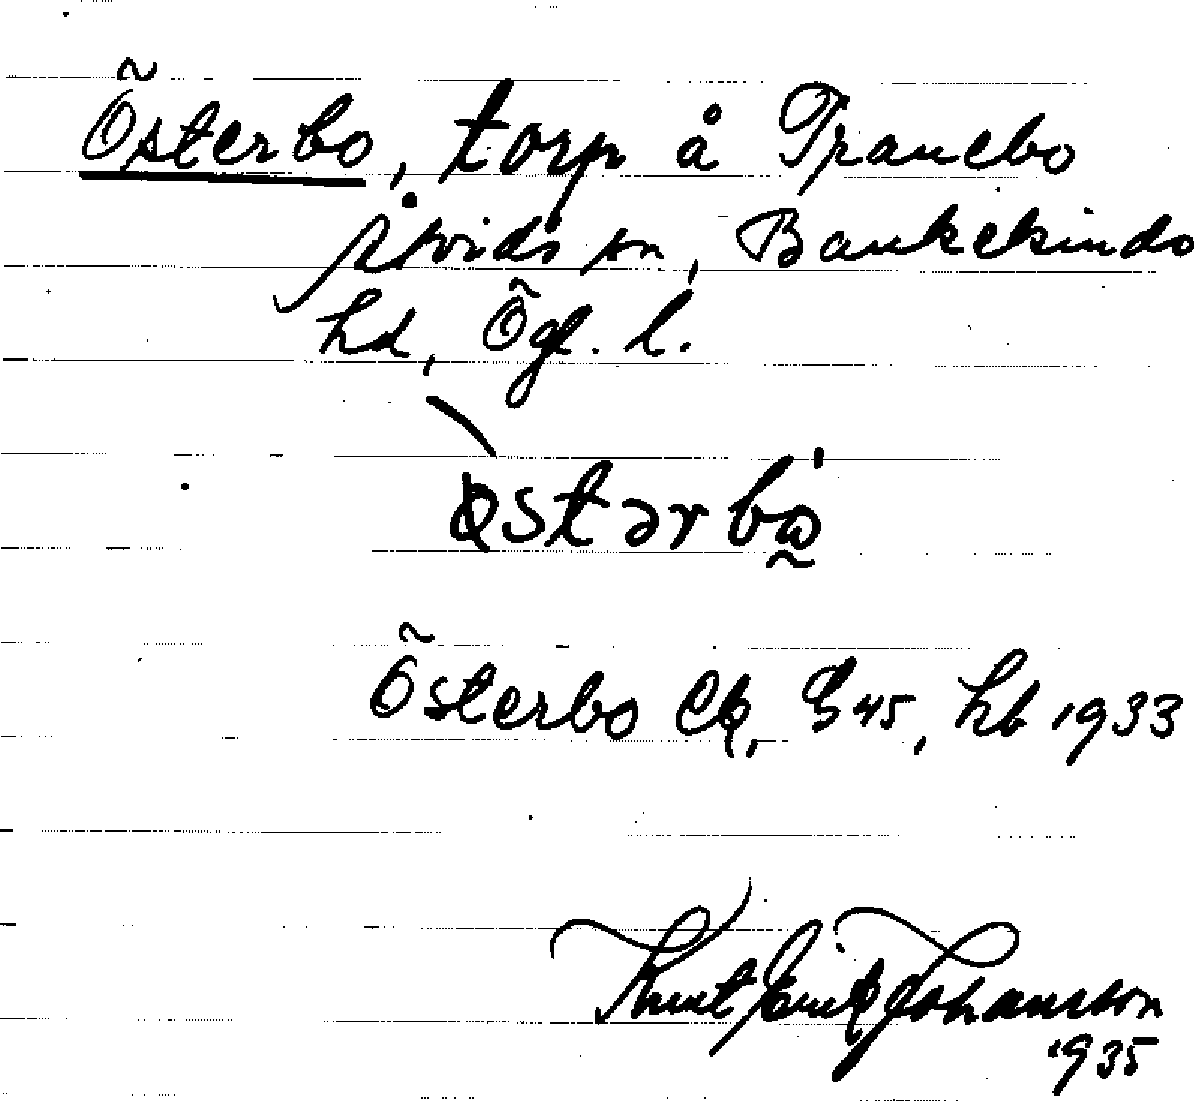 Österbo, torp å Tranebo
Åtvids sn, Bankekinds
hd, Ögl. l.
østərbω̰
Österbo Ek, G 45, hb 1933
Knut Erik Johansson
1935